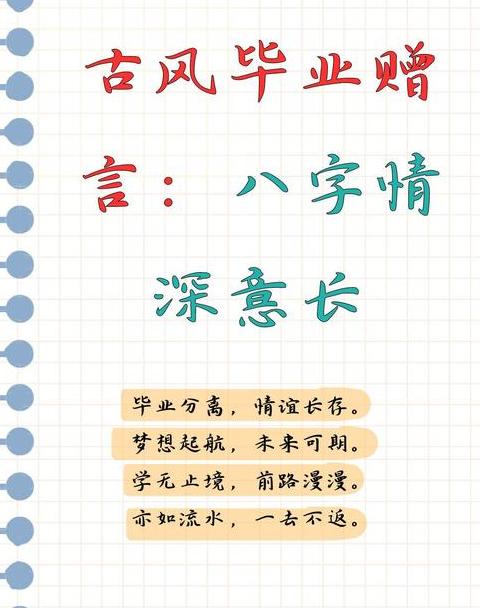 古风毕业赠
言：八字情
深意长
毕业分离，情谊长存。
梦想起航，未来可期。
学无止境，前路漫漫。
亦如流水，一去不返。